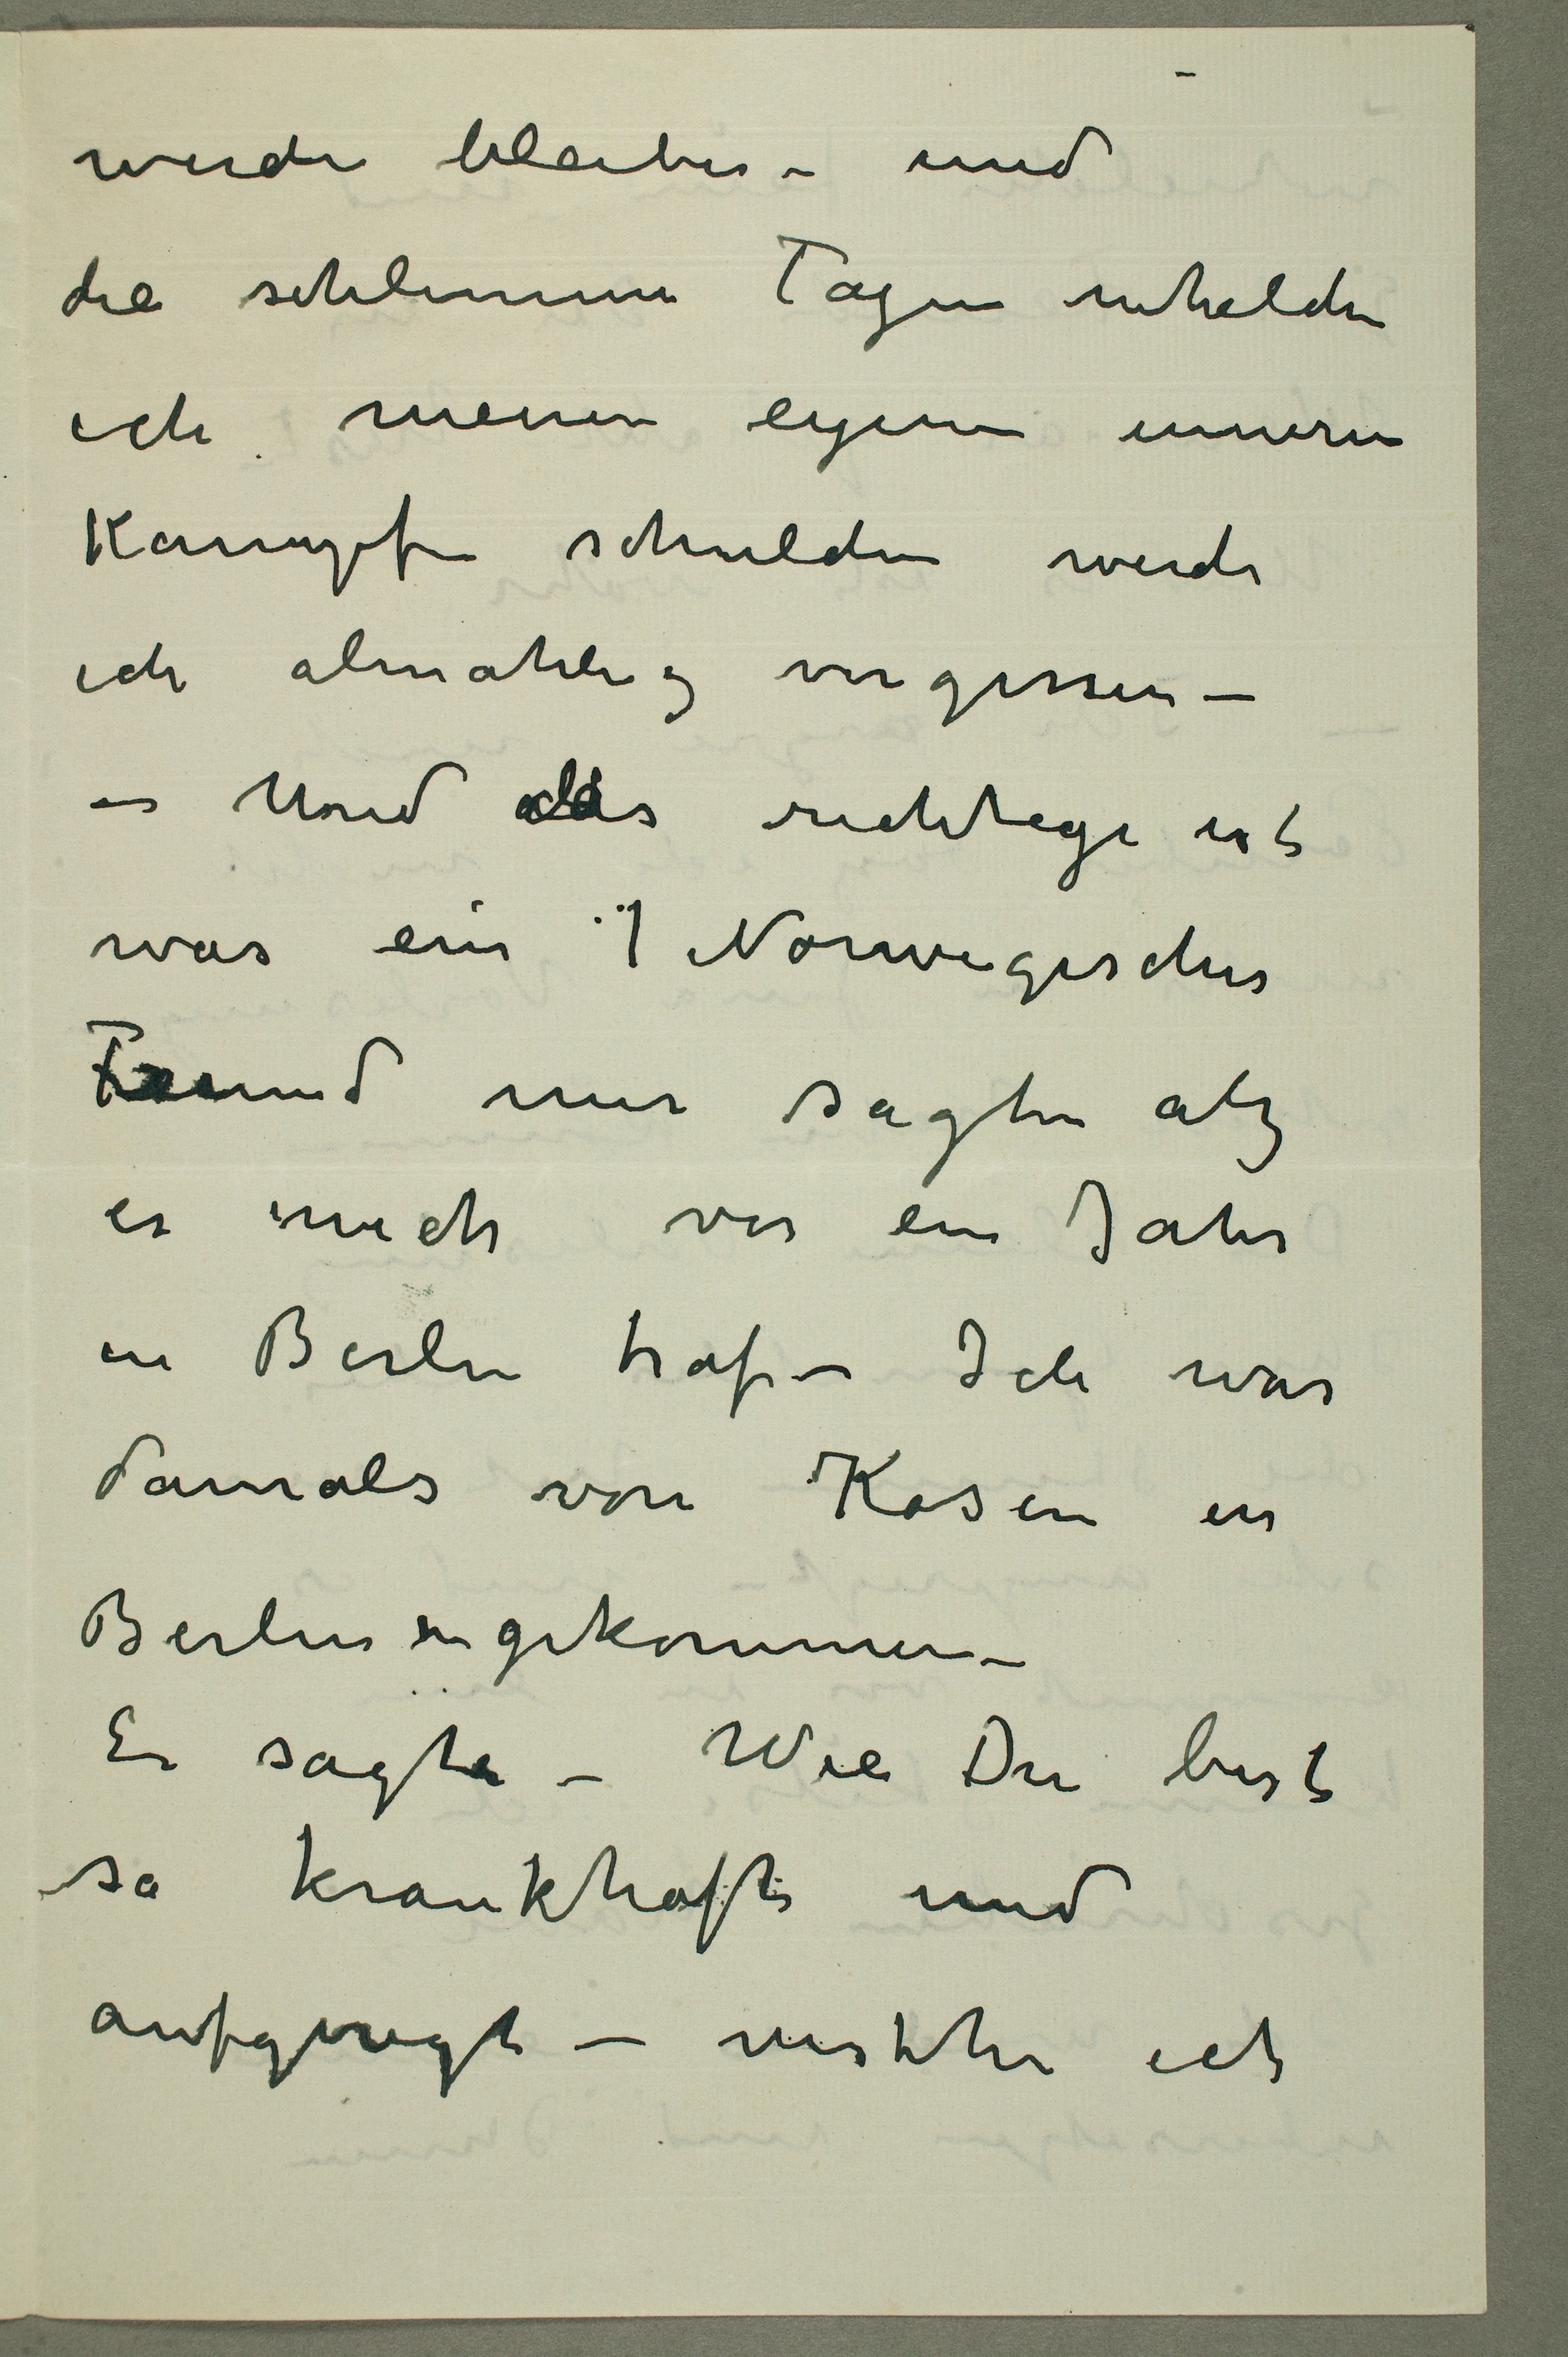 werde bleiben – und
die schlimmen Tagen
ich meinen eigenen inneren
Kampfen schulden werde
ich almählig vergessen –
– Und das richtige ist
was ein Norwegischer
Freund mir sagte alz
er mich vor ein Jahr
in Berlin traf – Ich war
damals von Kösen in
Berlin gekommen –
Er sagte – Wie Du bist
so krankhaft und
aufgeregt – ich